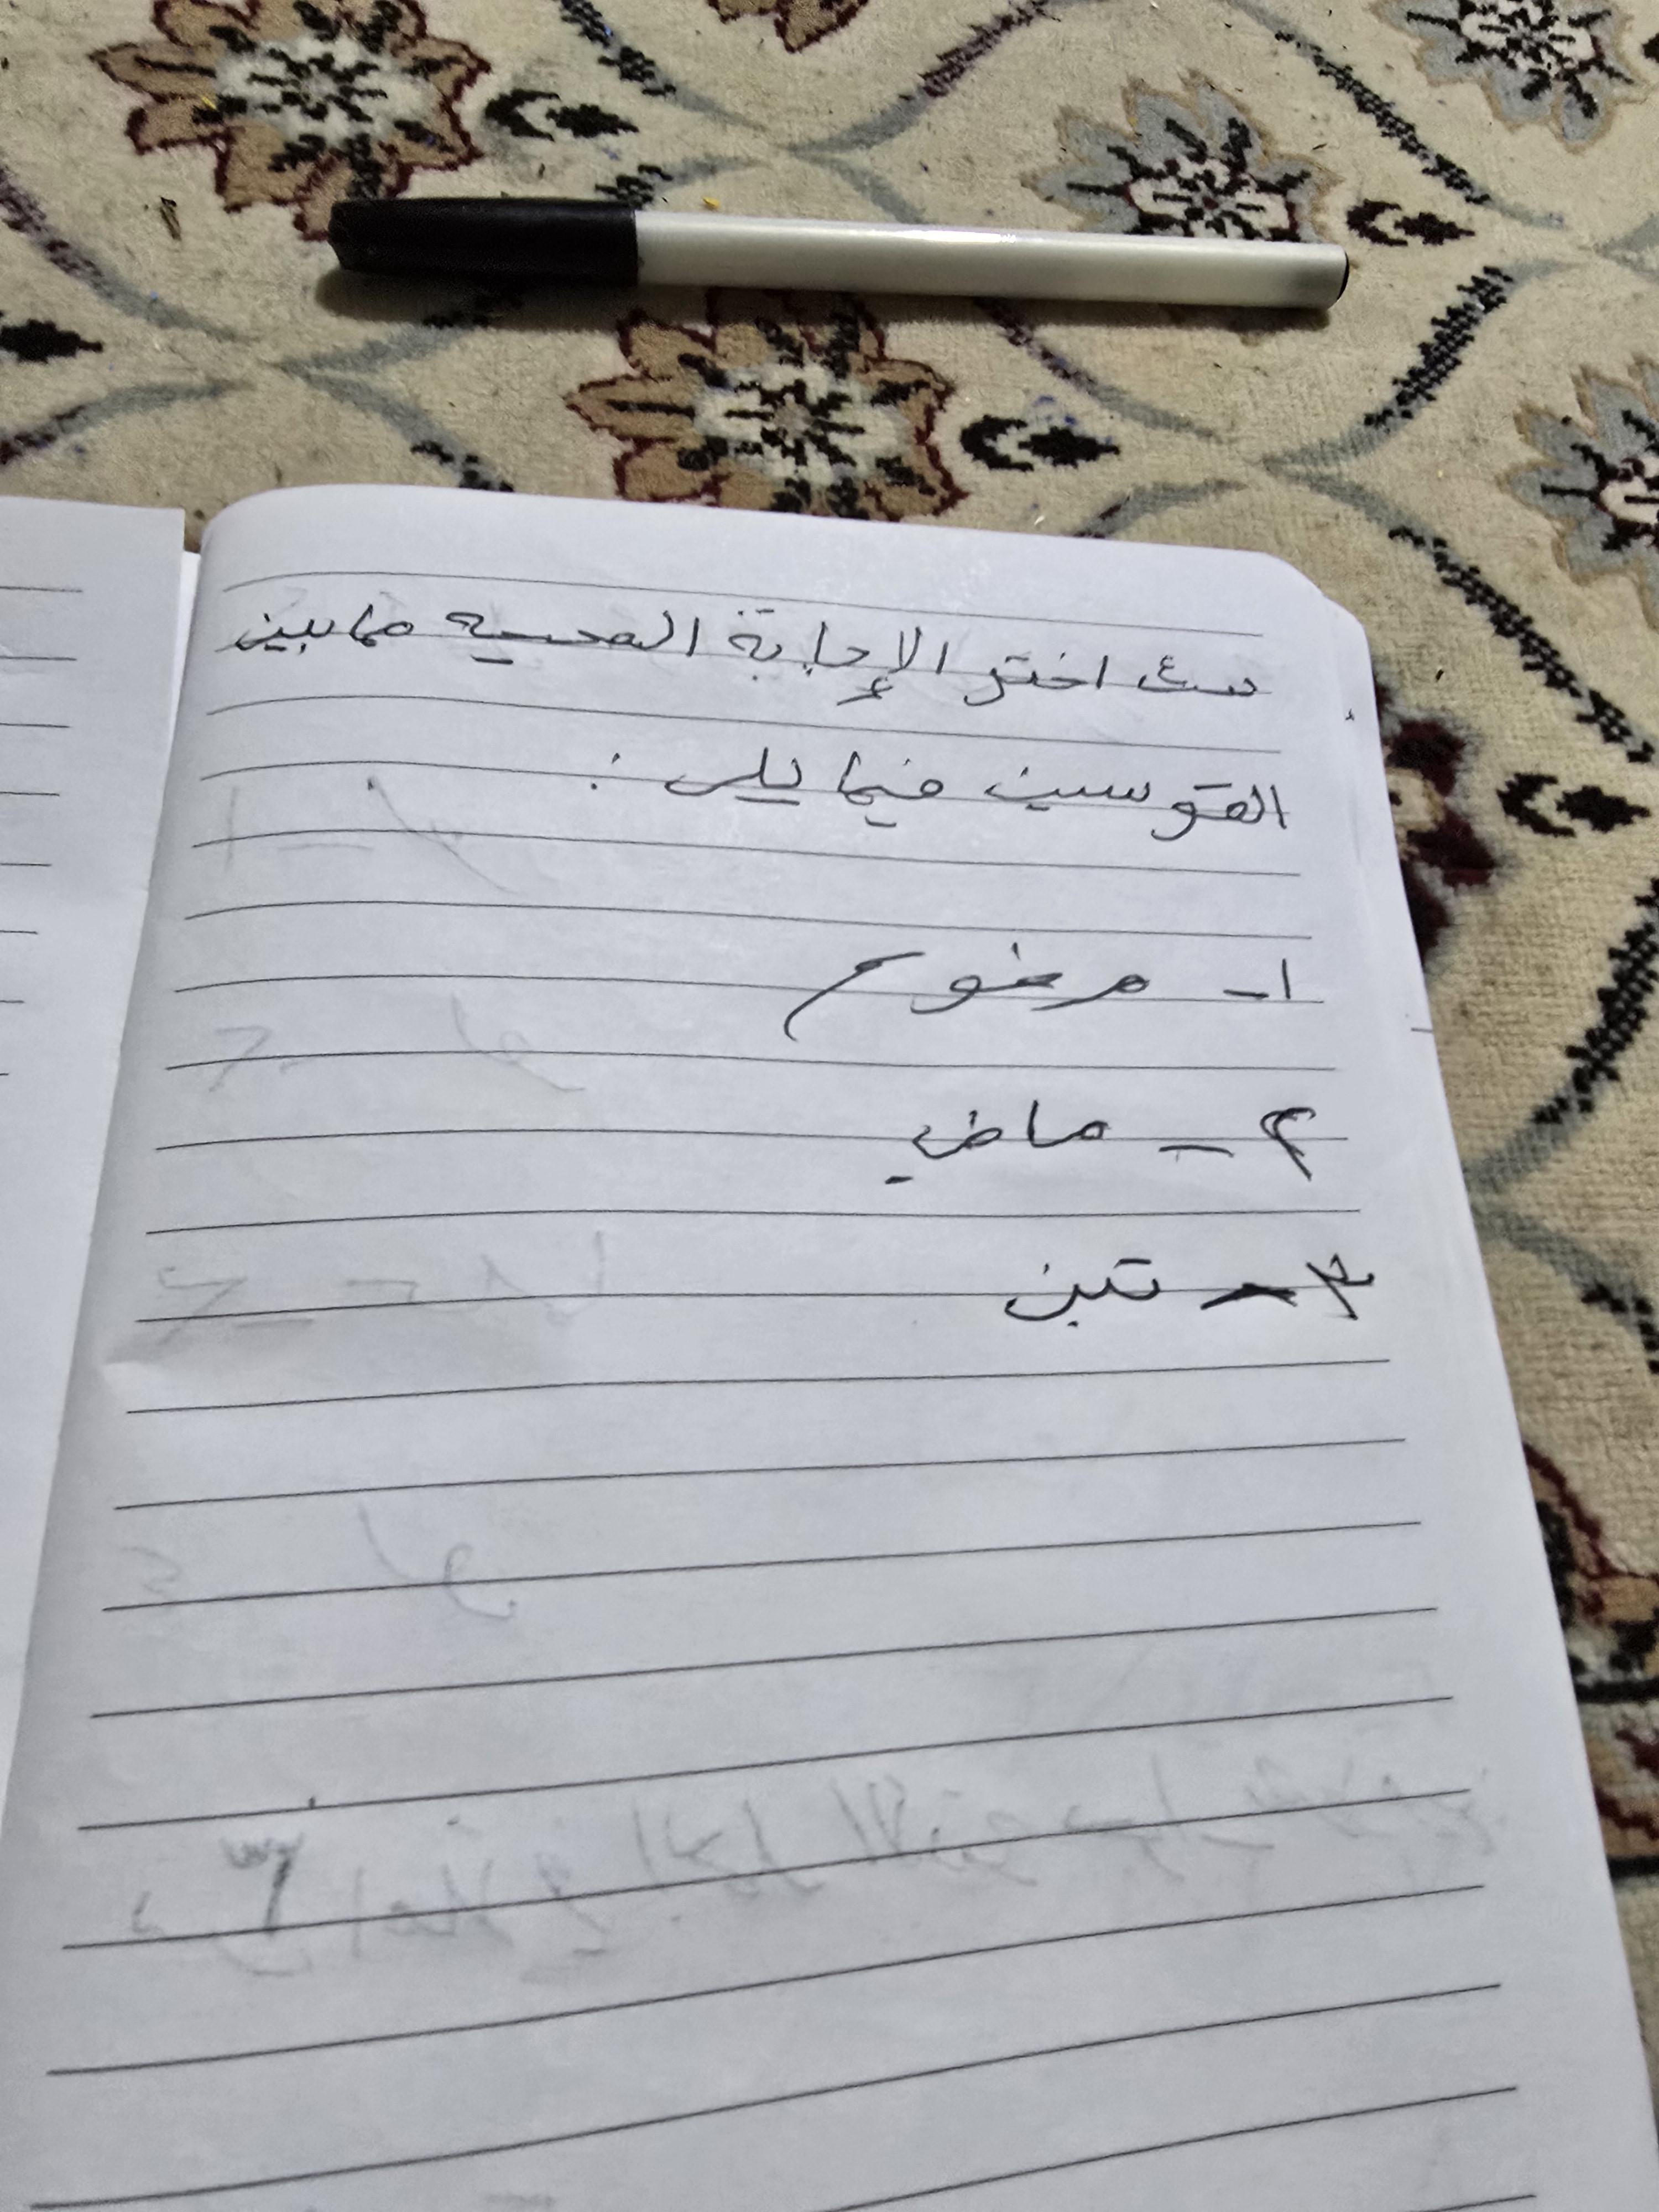 س٤ اختر الإجابة الصحيه مما بين
القوسين فيما يلي :
١- مرفوع
٢- ماضي
٣- تبن